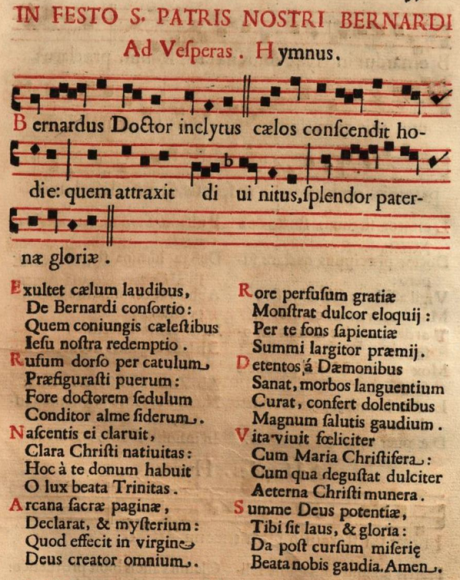 IN FESTO S. PATRIS NOSTRI BERNARDI
Ad Vesperas. Hymnus.
Bernardus Doctor inclytus cælos conscendit ho-
die: quem attraxit di ui nitus, splendor pater-
næ gloriæ.
Exultet cælum laudibus,
De Bernardi consortio:
Quem coniungis cælestibus
Iesu nostra redemptio.
Rusum dorso per catulum,
Præfigurasti puerum:
Fore doctorem sedulum
Conditor alme siderum.
Nascentis ei claruit,
Clara Christi natiuitas:
Hoc à te donum habuit
O lux beata Trinitas.
Arcana sacræ paginæ,
Declarat, & mysterium:
Quod effecit in virgine
Deus creator omnium.
Rore perfusum gratiæ
Monstrat dulcor eloquij:
Per te fons sapientiæ
Summi largitor præmij.
Detentos á Dæmonibus
Sanat, morbos languentium
Curat, confert dolentibus
Magnum salutis gaudium.
Vita viuit fœliciter
Cum Maria Christifera:
Cum qua degustat dulciter
Aeterna Christi munera.
Summe Deus potentiæ,
Tibi sit laus, & gloria:
Da post cursum miserię
Beata nobis gaudia. Amen.